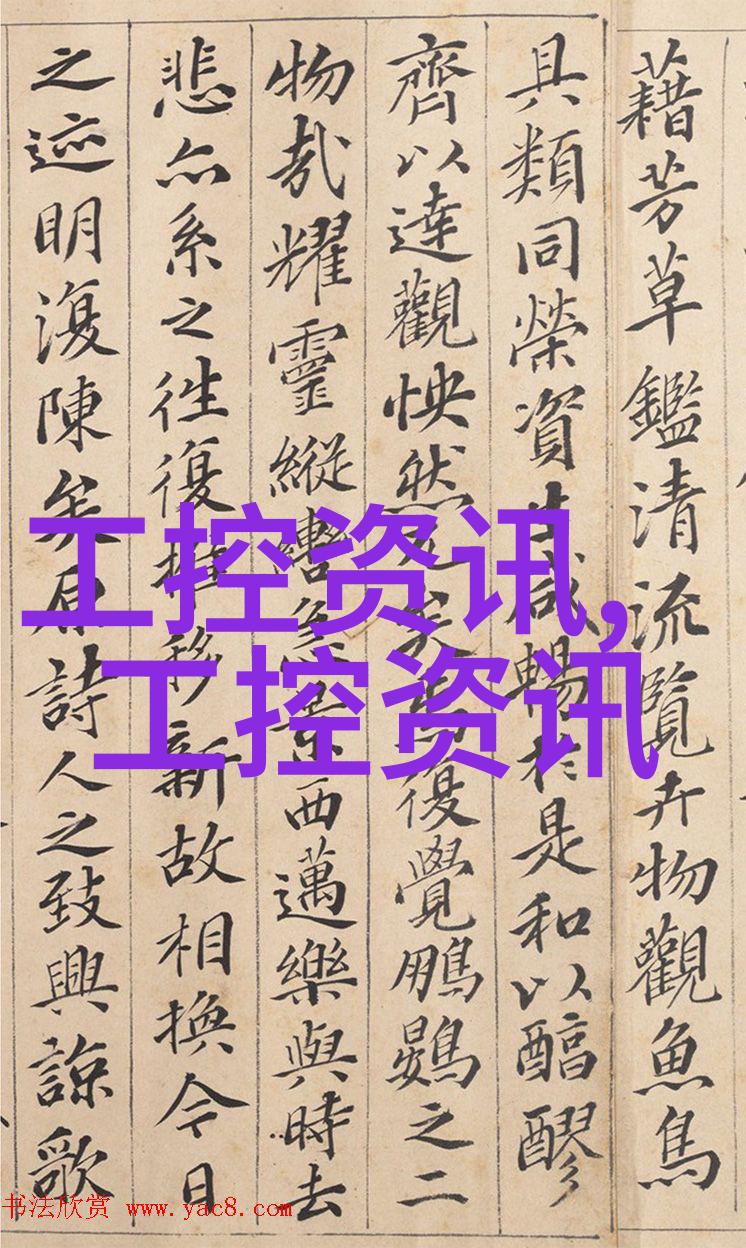 藉芳草鑑清流覽卉物觀魚鳥
具類同榮資生咸暢於是和以醕醪
齊以達觀怏然兀矣焉復覺鵬鷃之二
物哉耀靈縱轡急景西邁樂與時去
悲亦系之往復推移新故相換今日
之迹明復陳矣原詩人之致興諒歌
工控资讯,
工控资讯
书法欣赏 www.yac8.com